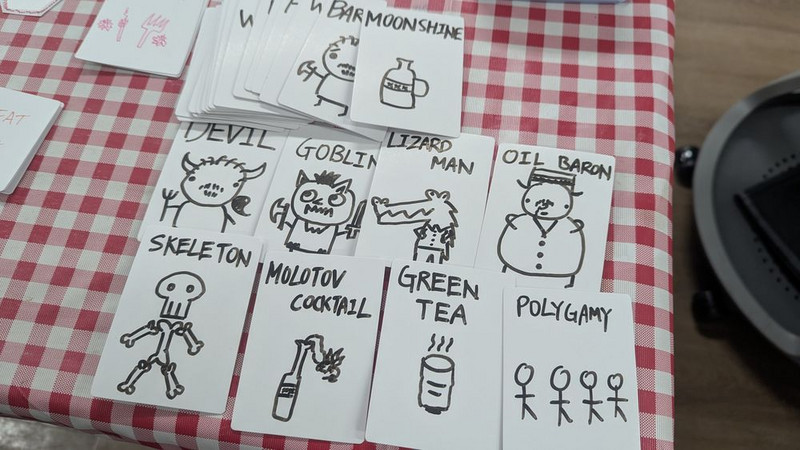 BAR
MOONSHINE
DEVIL
GOBLIN
LIZARD
MAN
OIL BARON
SKELETON
MOLOTOV
COCKTAIL
GREEN
TEA
POLYGAMY